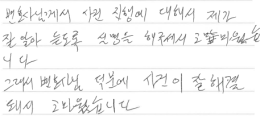 변호사님께서 사건 진행에 대해서 제가
잘 알아 듣도록 설명을 해주셔서 고맙마웠습
니다
그래서 변호사님 덕분에 사건이 잘 해결
돼서 고마웠습니다